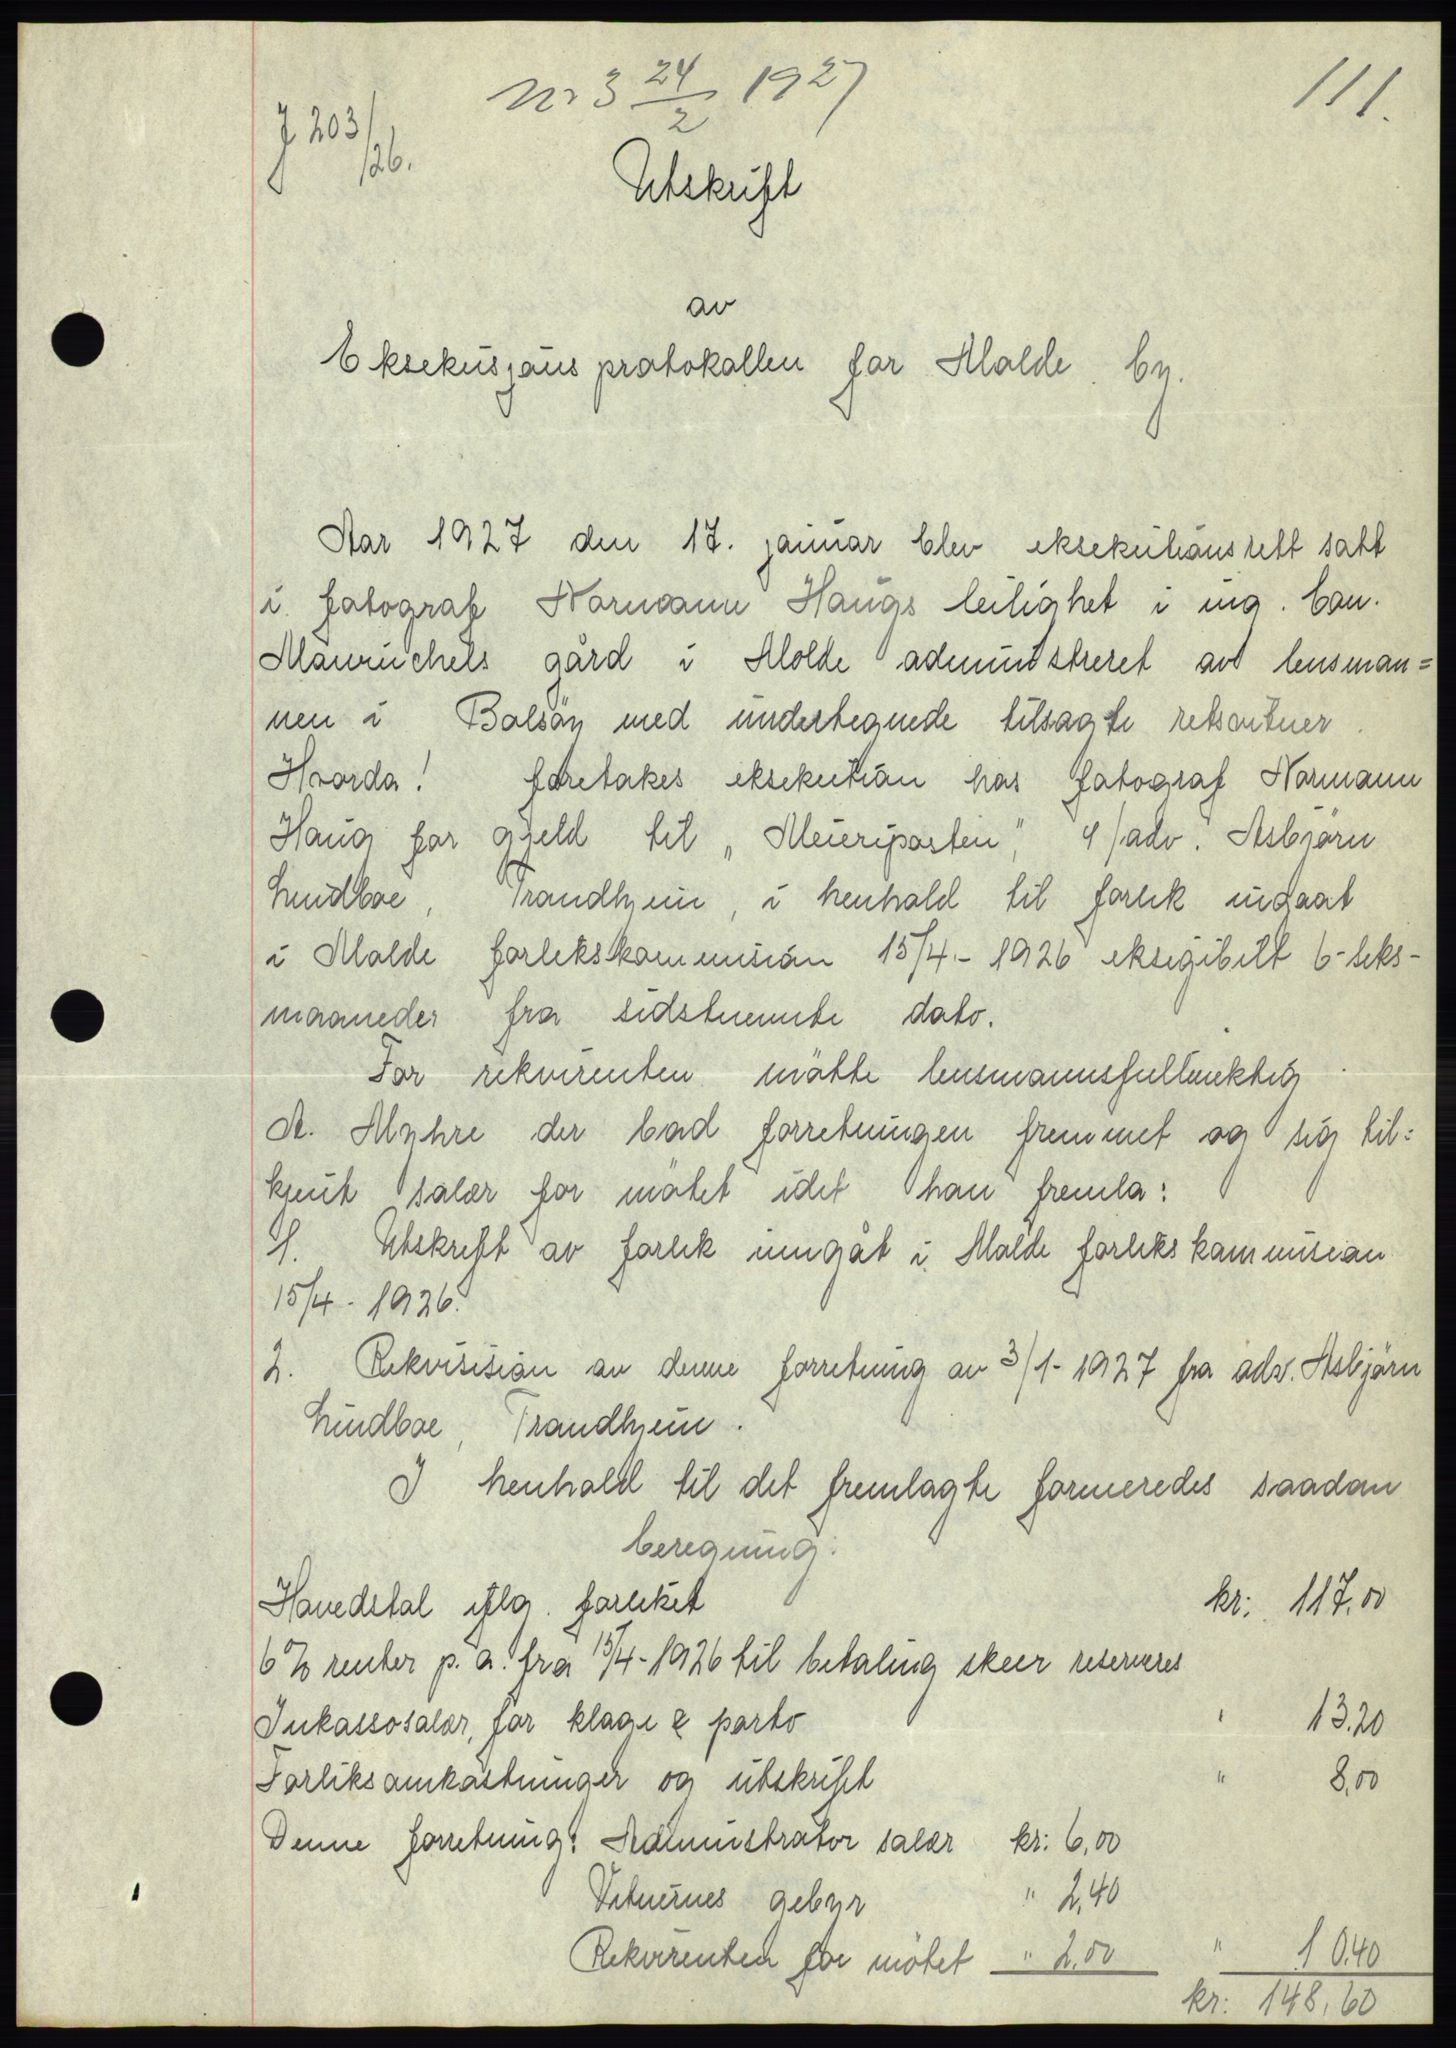 Nr 3 24/2 1927
111.
J 203/26.
Utskrift
av
Eksekusjonsprotokollen for Molde by.
Aar 1927 den 17. januar blev eksekutionsrett satt
i fotograf Normann Haugs leilighet i ing. Con.
gård i Molde administreret av lensman=
nen i Bolsöy med undertegnede tilsagte retsvitner.
Hvorda! foretakes eksekution hos fotograf Normann
Haug for gjeld til „Meieriposten", v/adv. Asbjörn
Lindboe, Trondhjem, i henhold til forlik ingaat
i Molde forlikskommision 15/4.- 1926 eksigibilt 6-seks-
maaneder fra sidstnevnte dato.
For rekvirenten mötte lensmannsfullmektig
A. Myhre der bad forretningen fremmet og sig til=
kjent salær for mötet idet han fremla:
1. Utskrift av forlik inngåt i Molde forlikskommision
15/4 - 1926.
2. Rekvisision av denne forretning av 3/1- 1927 fra adv. Asbjörn
Lindboe, Trondhjem.
I henhold til det fremlagte formeredes saadan
beregning:
Hovedstol iflg. forliket kr: 117,00
6% renter p. a. fra 15/4-1926 til betaling skeer reserveres
Inkassosalær, for klage & porto " 13.20
Forliksomkostninger og utskrift " 8,00
Denne forretning: Administrator salær kr: 6,00
Vitnernes gebyr " 2,40
Rekvirenten for mötet " 2,00 " 10.40
kr: 148,60